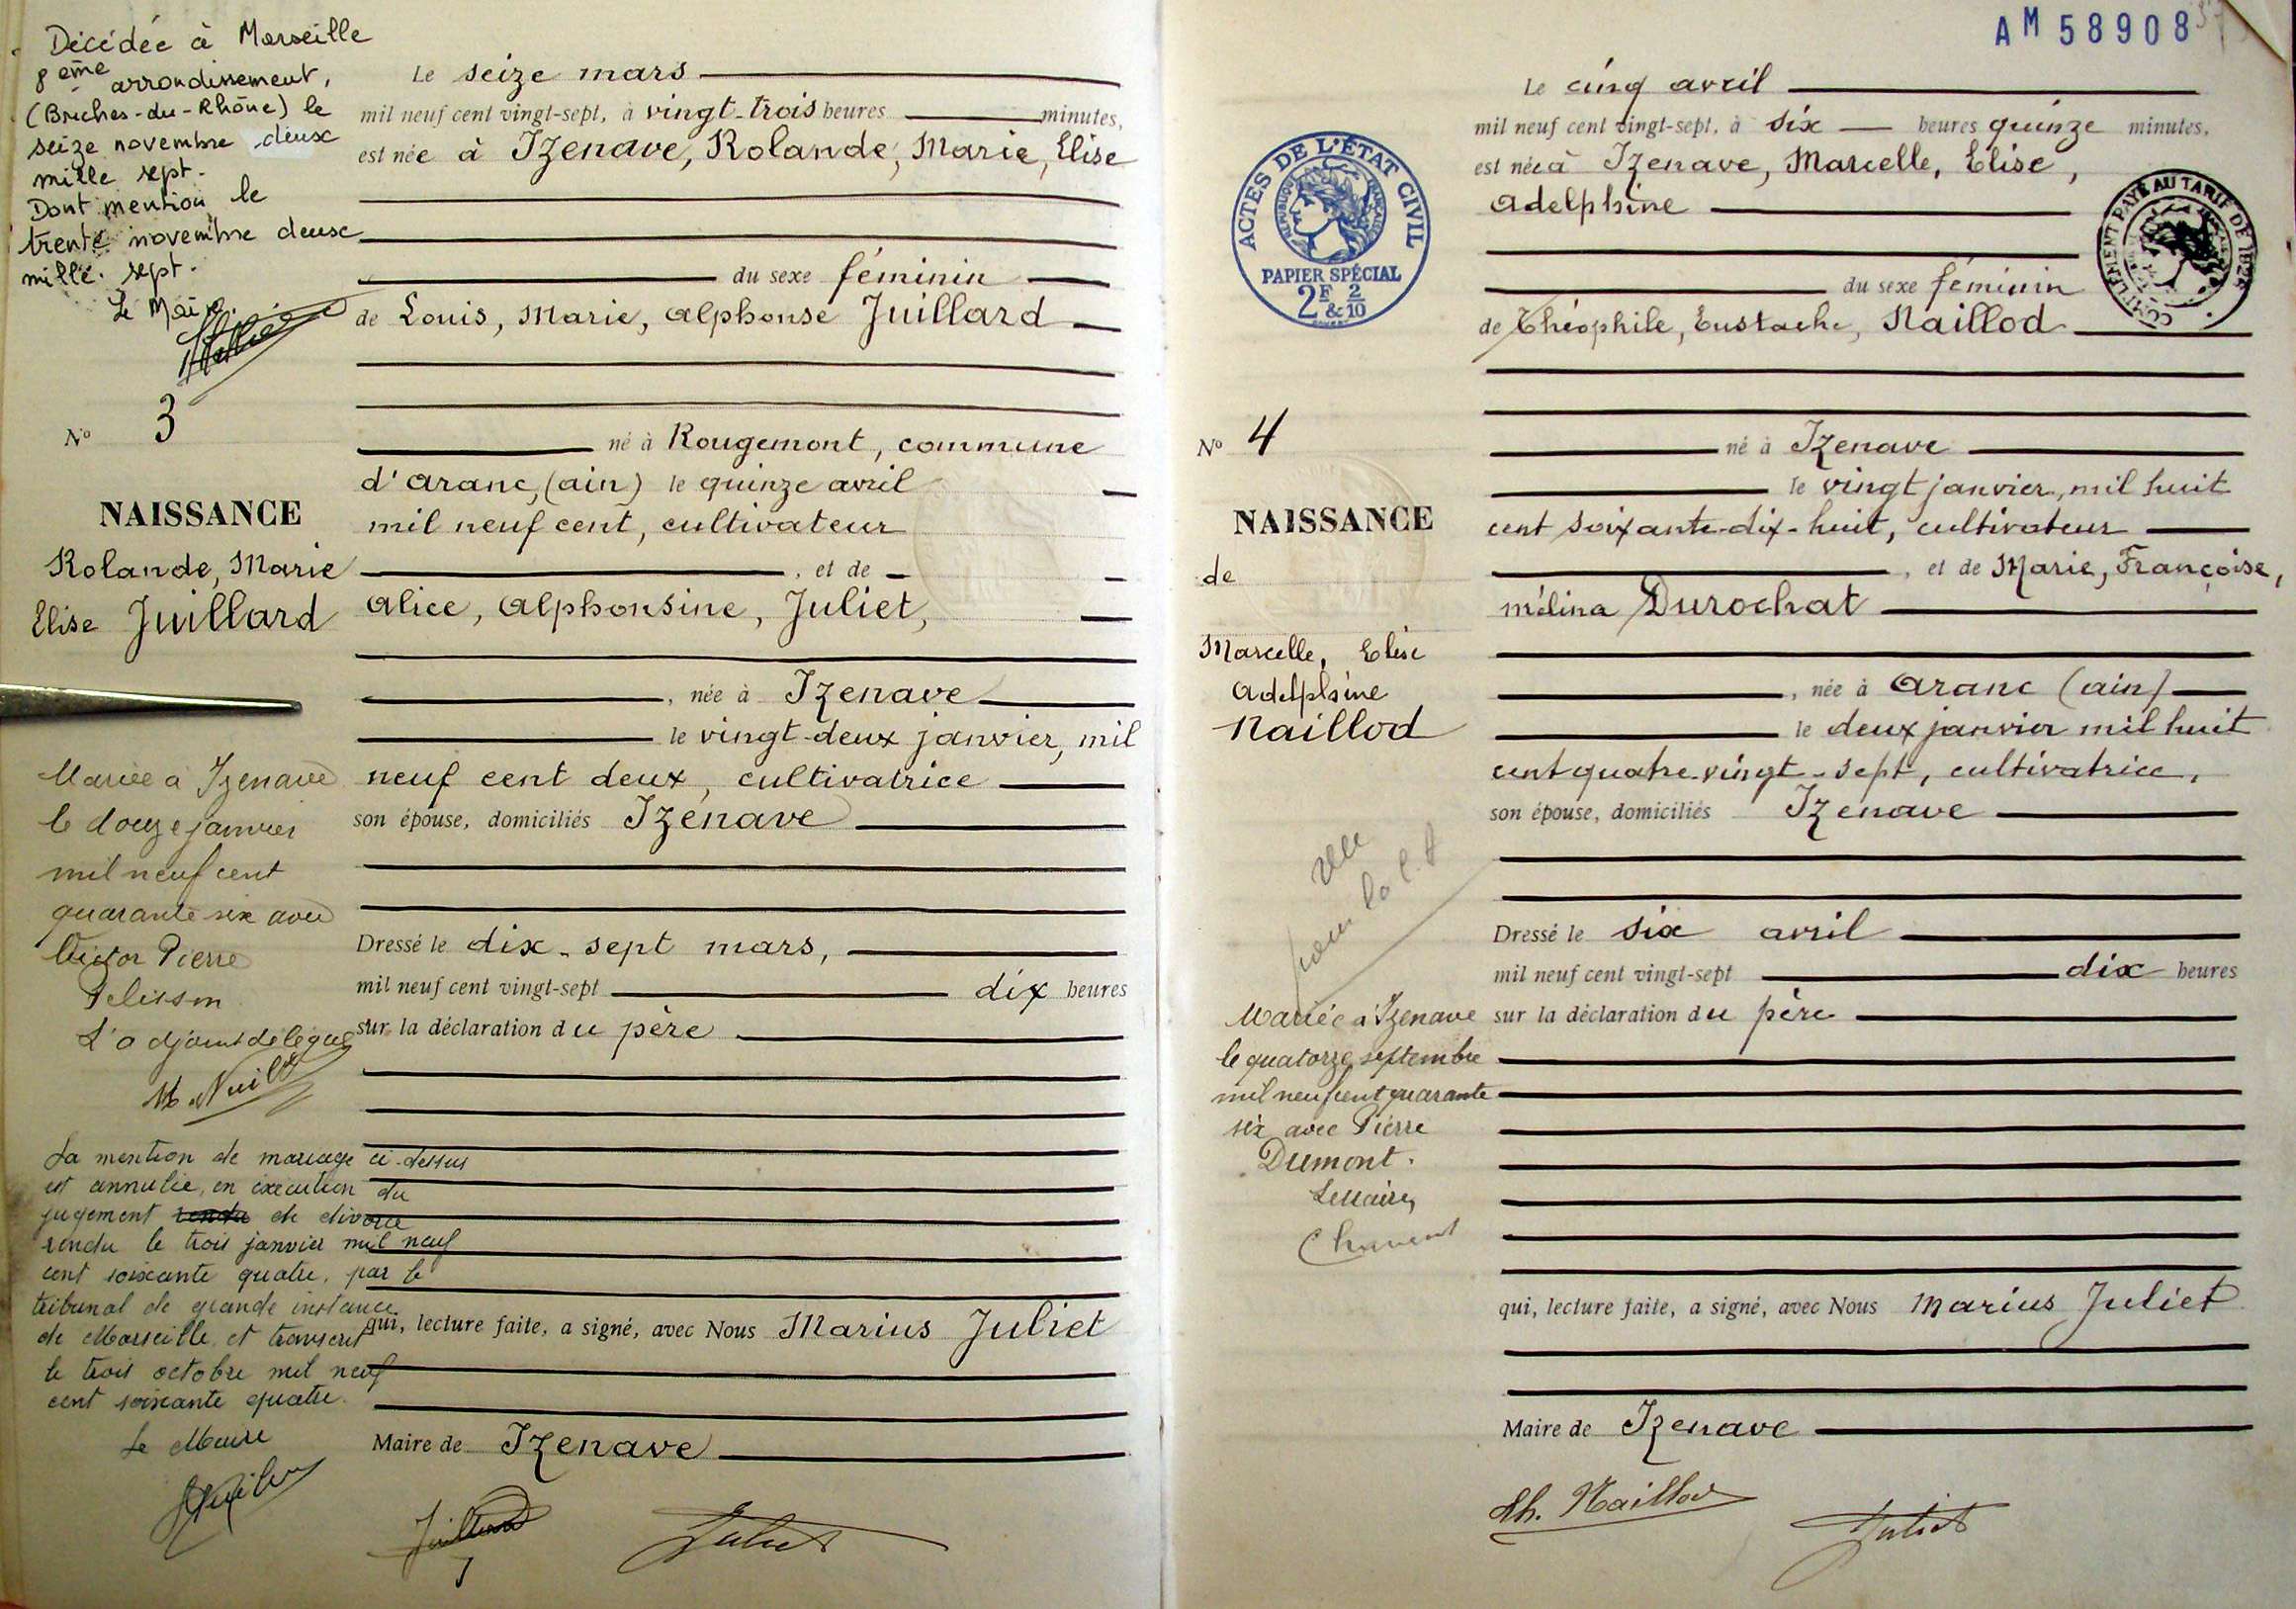 Décédée à Marseille
8ème arrondissement,
(Bouches-du-Rhône) le
seize novembre deux
mille sept.
Dont mention le
trente novembre deux
mille sept.
Le Maire
N° 3
NAISSANCE
Rolande, Marie
Elise Juillard
Mariée à Izenave
le douze janvier
mil neuf cent
quarante six avec
Victor Pierre
Pelisson
L'adjoint délégué
La mention de mariage ci-dessus
est annulée, en exécution du
jugement rendu de divorce
rendu le trois janvier mil neuf
cent soixante quatre, par le
tribunal de grande instance
de Marseille et transcrit
le trois octobre mil neuf
cent soixante quatre.
Le Maire
Le seize mars
mil neuf cent vingt-sept, à vingt-trois heures minutes,
est née à Izenave, Rolande, Marie, Elise
du sexe féminin
de Louis, Marie, Alphonse Juillard
né à Rougemont, commune
d'Aranc, (Ain) le quinze avril
mil neuf cent, cultivateur
, et de
Alice, Alphonsine, Juliet,
, née à Izenave
le vingt-deux janvier, mil
neuf cent deux, cultivatrice
son épouse, domiciliés Izenave
Dressé le dix-sept mars,
mil neuf cent vingt-sept dix heures
sur la déclaration du père
qui, lecture faite, a signé, avec Nous Marius Juliet
Maire de Izenave
Juillard
Juliet
AM 58908
ACTES DE L'ÉTAT CIVIL
RÉPUBLIQUE FRANÇAISE
PAPIER SPÉCIAL
2F & 2/10
COMPLÉMENT PAYÉ AU TARIF DE 1924
N° 4
NAISSANCE
de
Marcelle, Elise
Adelphine
Naillod
pour la
Mariée à Izenave
le quatorze septembre
mil neuf cent quarante
six avec Pierre
Dumont.
Le Maire,
Le cinq avril
mil neuf cent vingt-sept, à six heures quinze minutes,
est née à Izenave, Marcelle, Elise,
Adelphine
du sexe féminin
de Théophile, Eustache, Naillod
né à Izenave
le vingt janvier, mil huit
cent soixante-dix-huit, cultivateur
, et de Marie, Françoise,
mélina Durochat
, née à Aranc (Ain)
le deux janvier mil huit
cent quatre-vingt-sept, cultivatrice,
son épouse, domiciliés Izenave
Dressé le six avril
mil neuf cent vingt-sept dix heures
sur la déclaration du père
qui, lecture faite, a signé, avec Nous Marius Juliet
Maire de Izenave
Th. Naillod
Juliet